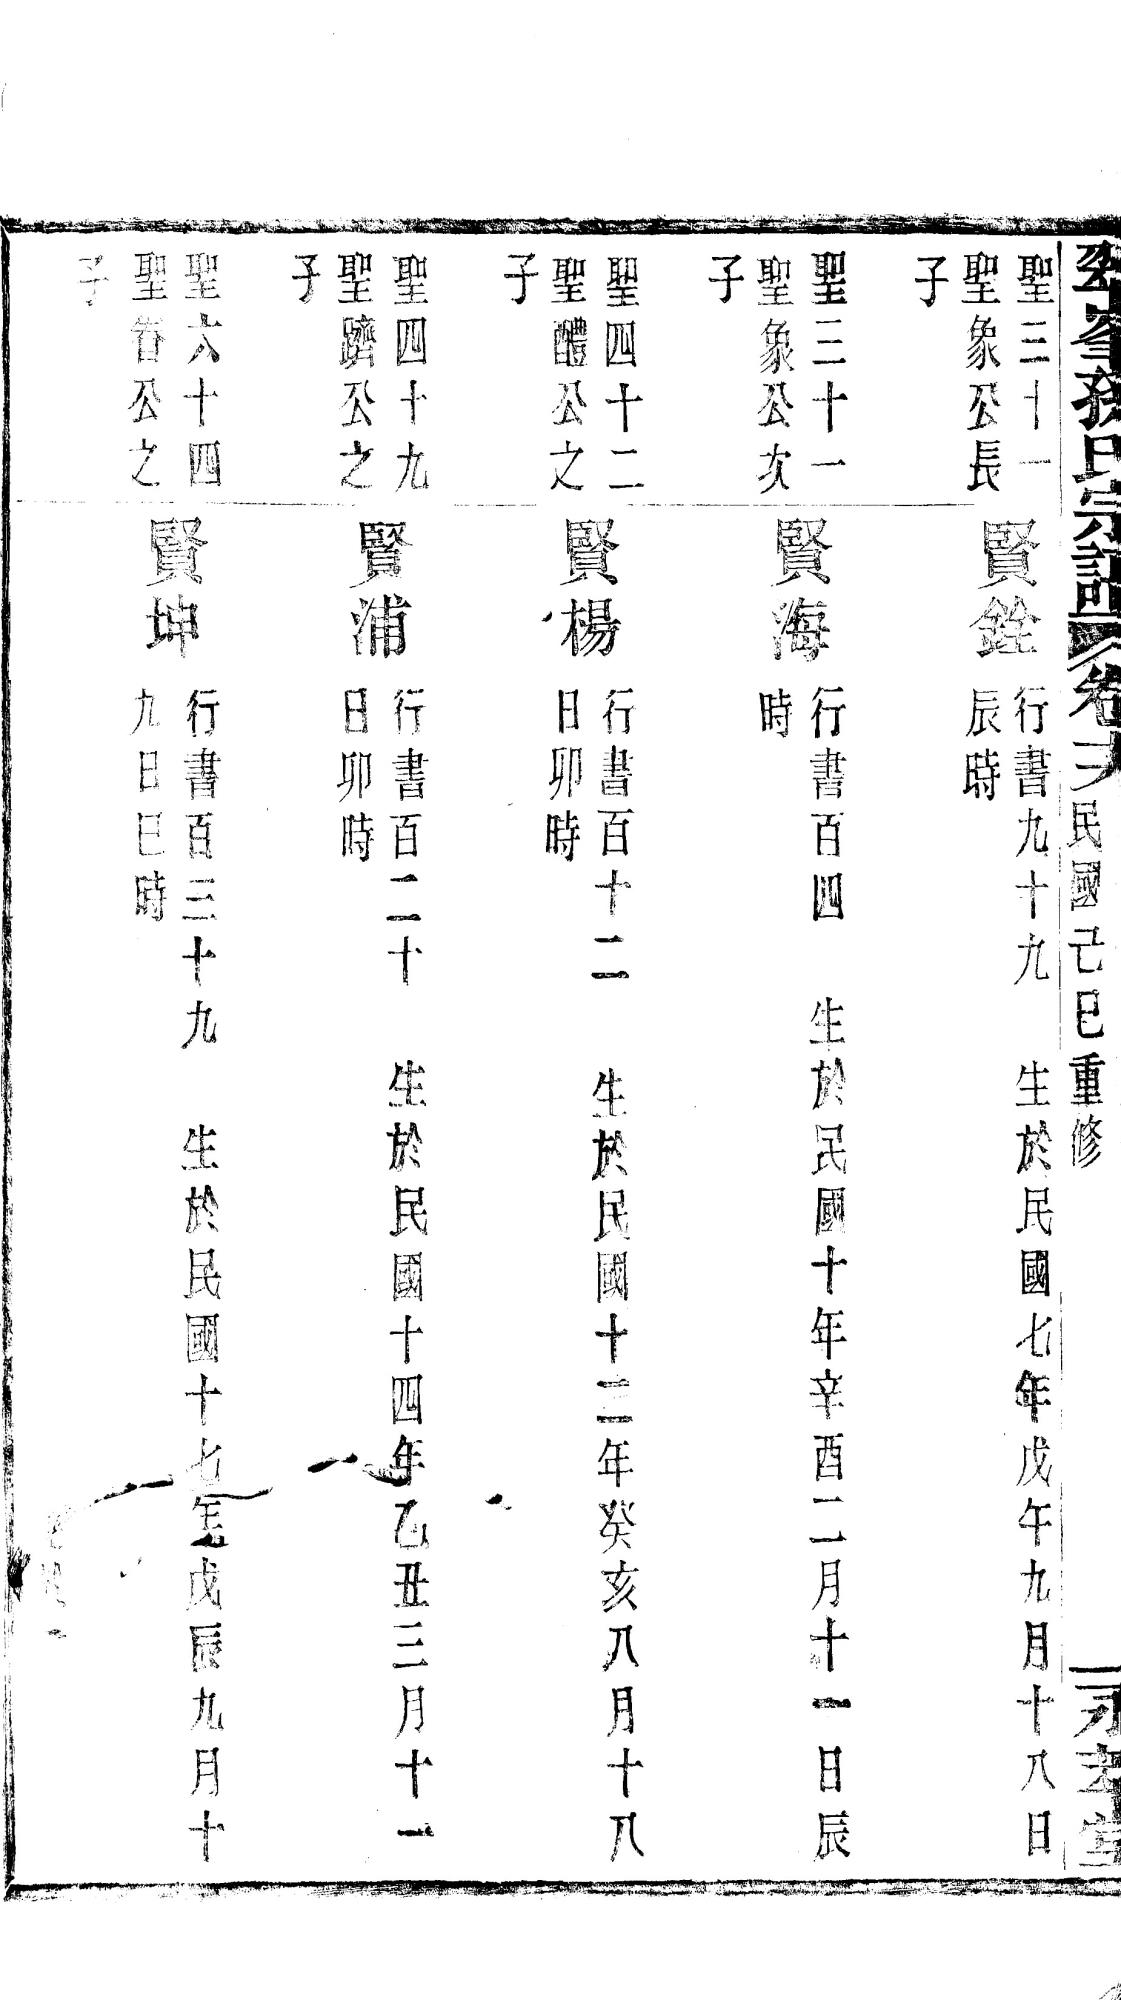 孫氏宗譜
卷
民國己巳重修
永孝堂
聖三十一
聖象公長
子
賢銓
行書九十九 生於民國七年戊午九月十八日
辰時
聖三十一
聖象公次
子
賢海
行書百四 生於民國十年辛酉二月十一日辰
時
聖四十二
聖醴公之
子
賢楊
行書百十二 生於民國十二年癸亥八月十八
日卯時
聖四十九
聖躋公之
子
賢浦
行書百二十 生於民國十四年乙丑三月十一
日卯時
聖六十四
聖眷公之
子
賢坤
行書百三十九 生於民國十七年戊辰九月十
九日巳時